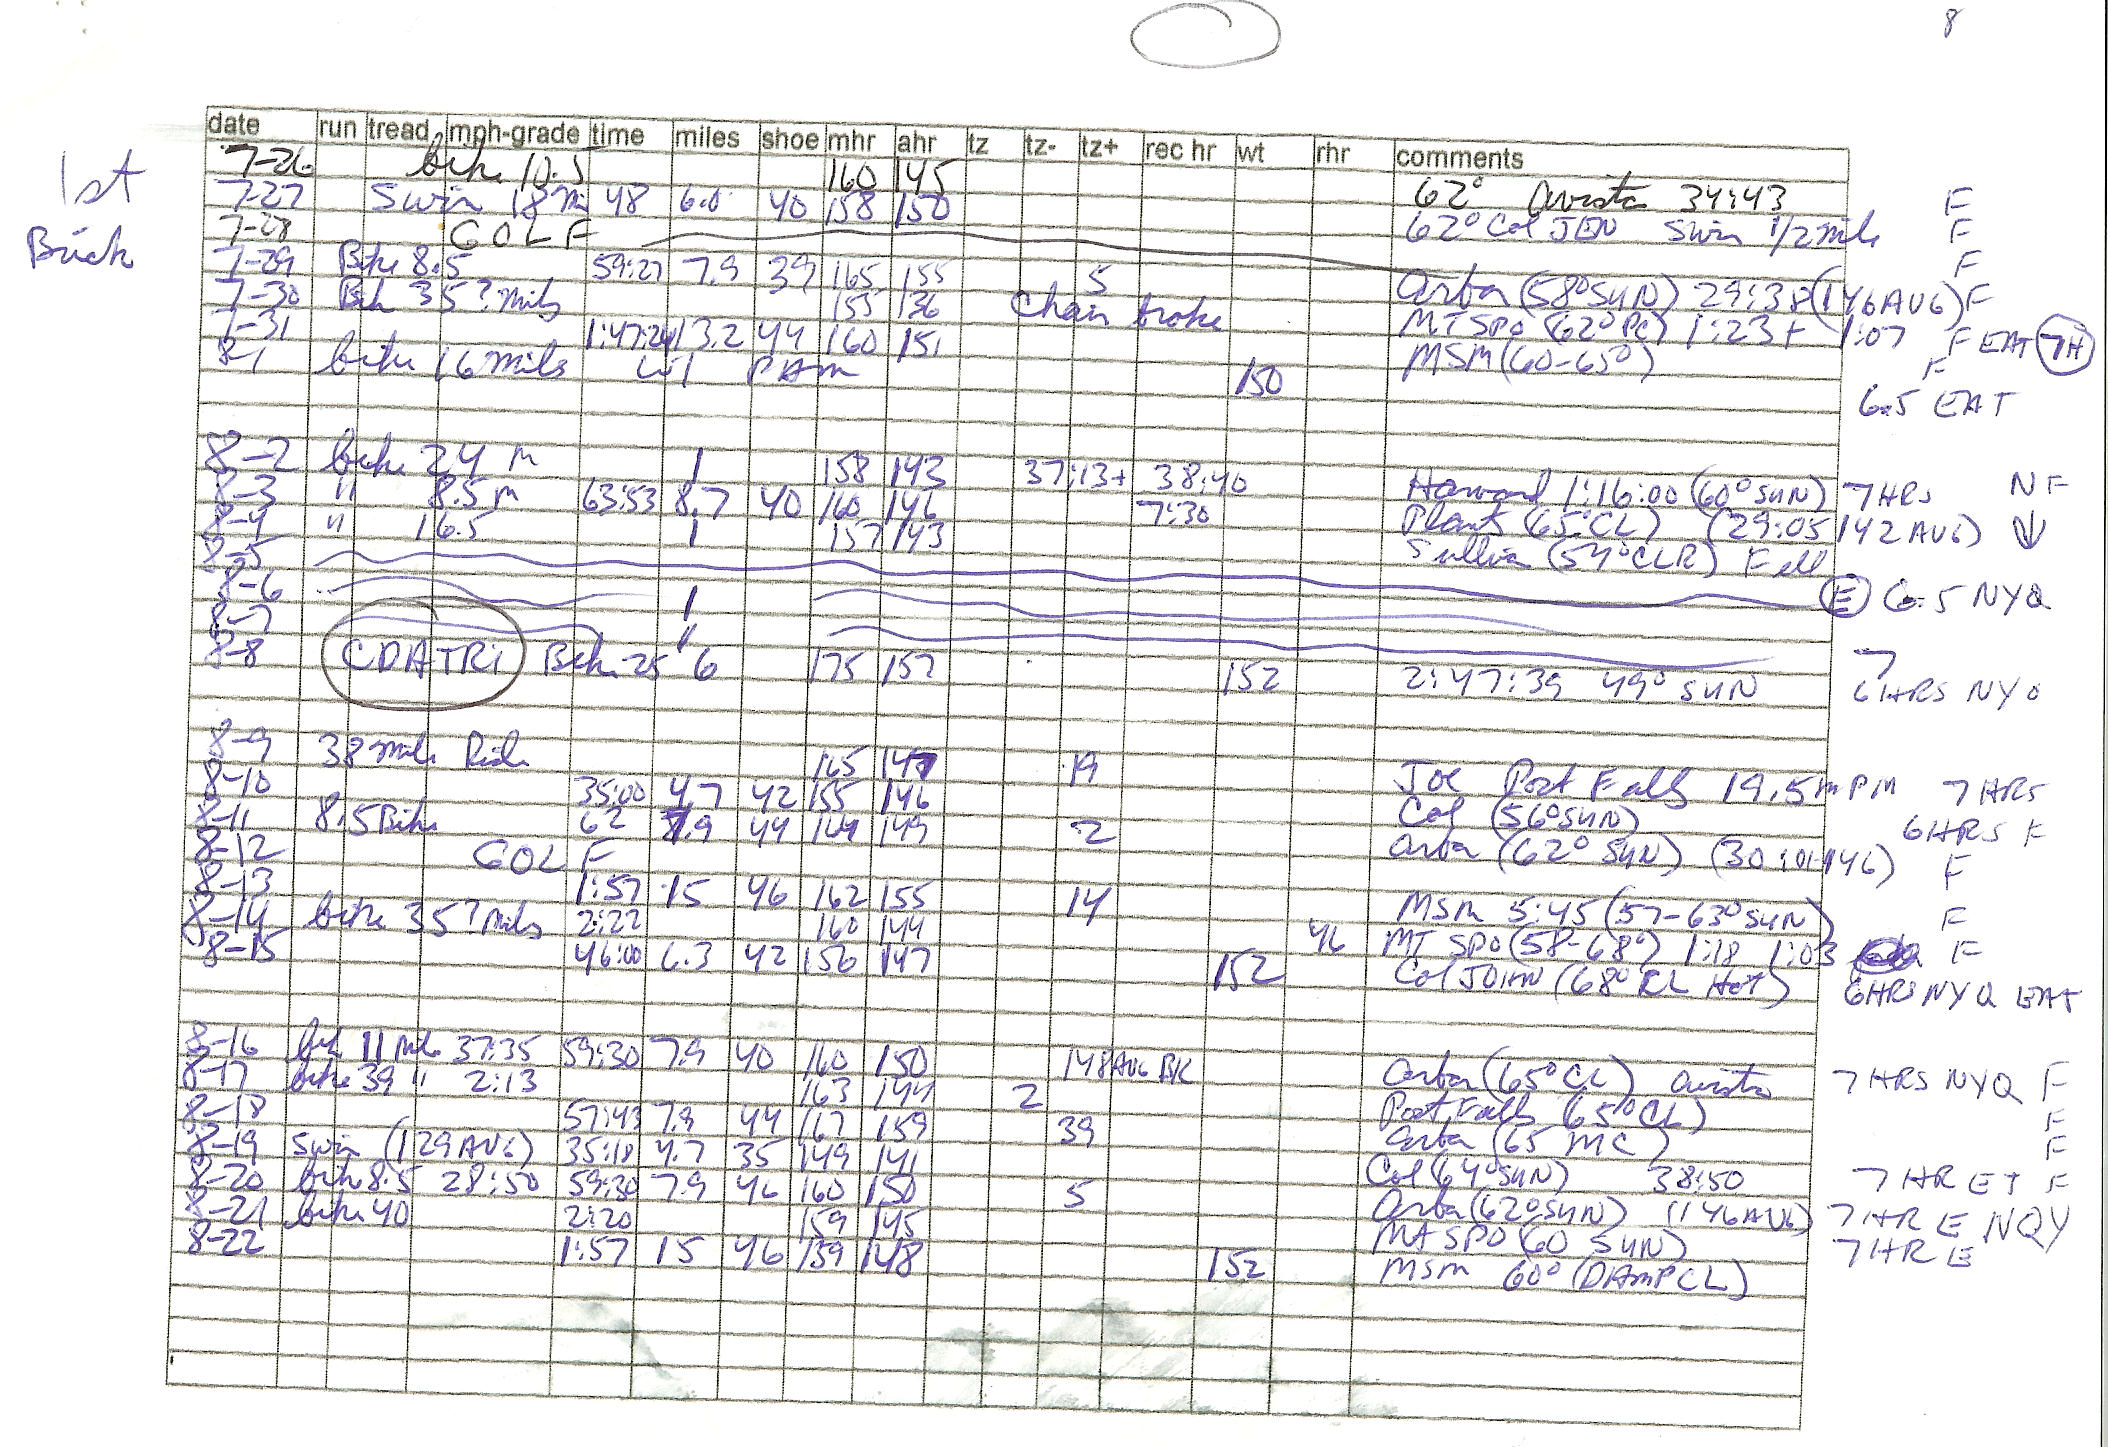 8
date run tread mph-grade time miles shoe mhr ahr tz tz- tz+ rec hr wt rhr comments
1st
Brick
7-26 bike 10.5 160 145 62° Avista 34:43 F
7-27 Swim 18m 48 6.0 40 158 150 62° Col JEN Swim 1/2 mile F
7-28 GOLF F
7-29 Bike 8.5 59:27 7.9 39 165 155 5 Arbor (58° SUN) 29:38 (146 AUG) F
7-30 Bike 35? miles 155 136 Chain broke MT SPO (62° PC) 1:23 + 1:07 F EAT 7H
7-31 1:47:24 13.2 44 160 151 MSM (60-65°) F
8-1 bike 16 miles w/ PAM 150 6.5 EAT
8-2 bike 24 m 1 158 143 37:13+ 38:40 Harvard 1:16:00 (60° SUN) 7HRS NF
8-3 " 8.5 m 63:53 8.7 40 160 146 7:30 Plants (65° CL) (29:05 142 AUG)
8-4 " 16.5 1 157 143 Sullivan (54° CLR) Fell
8-5 E 6.5 NYQ
8-6
8-7 7
8-8 CDA TRI Bike 25 6 175 157 152 2:47:39 49° SUN 6HRS NYQ
8-9 38 mile Ride 165 147 19 Joe Post Falls 19.5 mPM 7HRS
8-10 35:00 4.7 42 155 146 Col (56° SUN) 6HRS F
8-11 8.5 Bike 62 7.9 44 149 2 Arbor (62° SUN) (30:01-146) F
8-12 GOLF
8-13 1:57 15 46 162 155 14 MSM 5:45 (57-63° SUN) F
8-14 bike 35? miles 2:22 160 144 46 MT SPO (58-68°) 1:18 1:03 F
8-15 46:00 6.3 42 156 147 152 Col JOHN (68° CL Hot) 6HRS NYQ EAT
8-16 bike 11 mile 37:35 59:30 7.9 40 160 150 148 AUG BK Arbor (65° CL) Avista 7HRS NYQ F
8-17 bike 39 " 2:13 163 144 2 Post Falls (65° CL) F
8-18 57:43 7.9 44 167 159 39 Arbor (65 MC) F
8-19 Swim (129 AUG) 35:18 4.7 35 149 141 Col (64° SUN) 38:50 7HR ET F
8-20 bike 8.5 28:50 59:30 7.9 46 160 150 5 Arbor (62° SUN) (146 AUG) 7HR E NQY
8-21 bike 40 2:20 159 145 MT SPO (60 SUN) 7HR E
8-22 1:57 15 46 159 148 152 MSM 60° (DAMP CL)